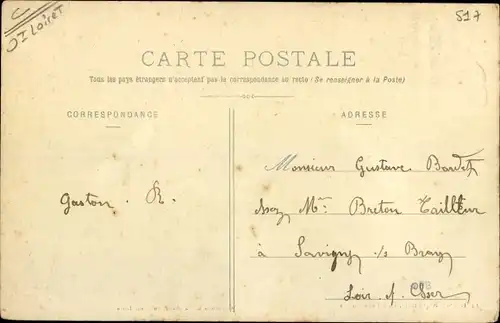 C
Loiret
517
CARTE POSTALE
Tous les pays étrangers n'acceptent pas la correspondance au recto (Se renseigner à la Poste)
CORRESPONDANCE
ADRESSE
Monsieur Gustave Bardet
chez Mr Breton Tailleur
Gaston . R.
à Savigny s/s Bray
Loir & Cher